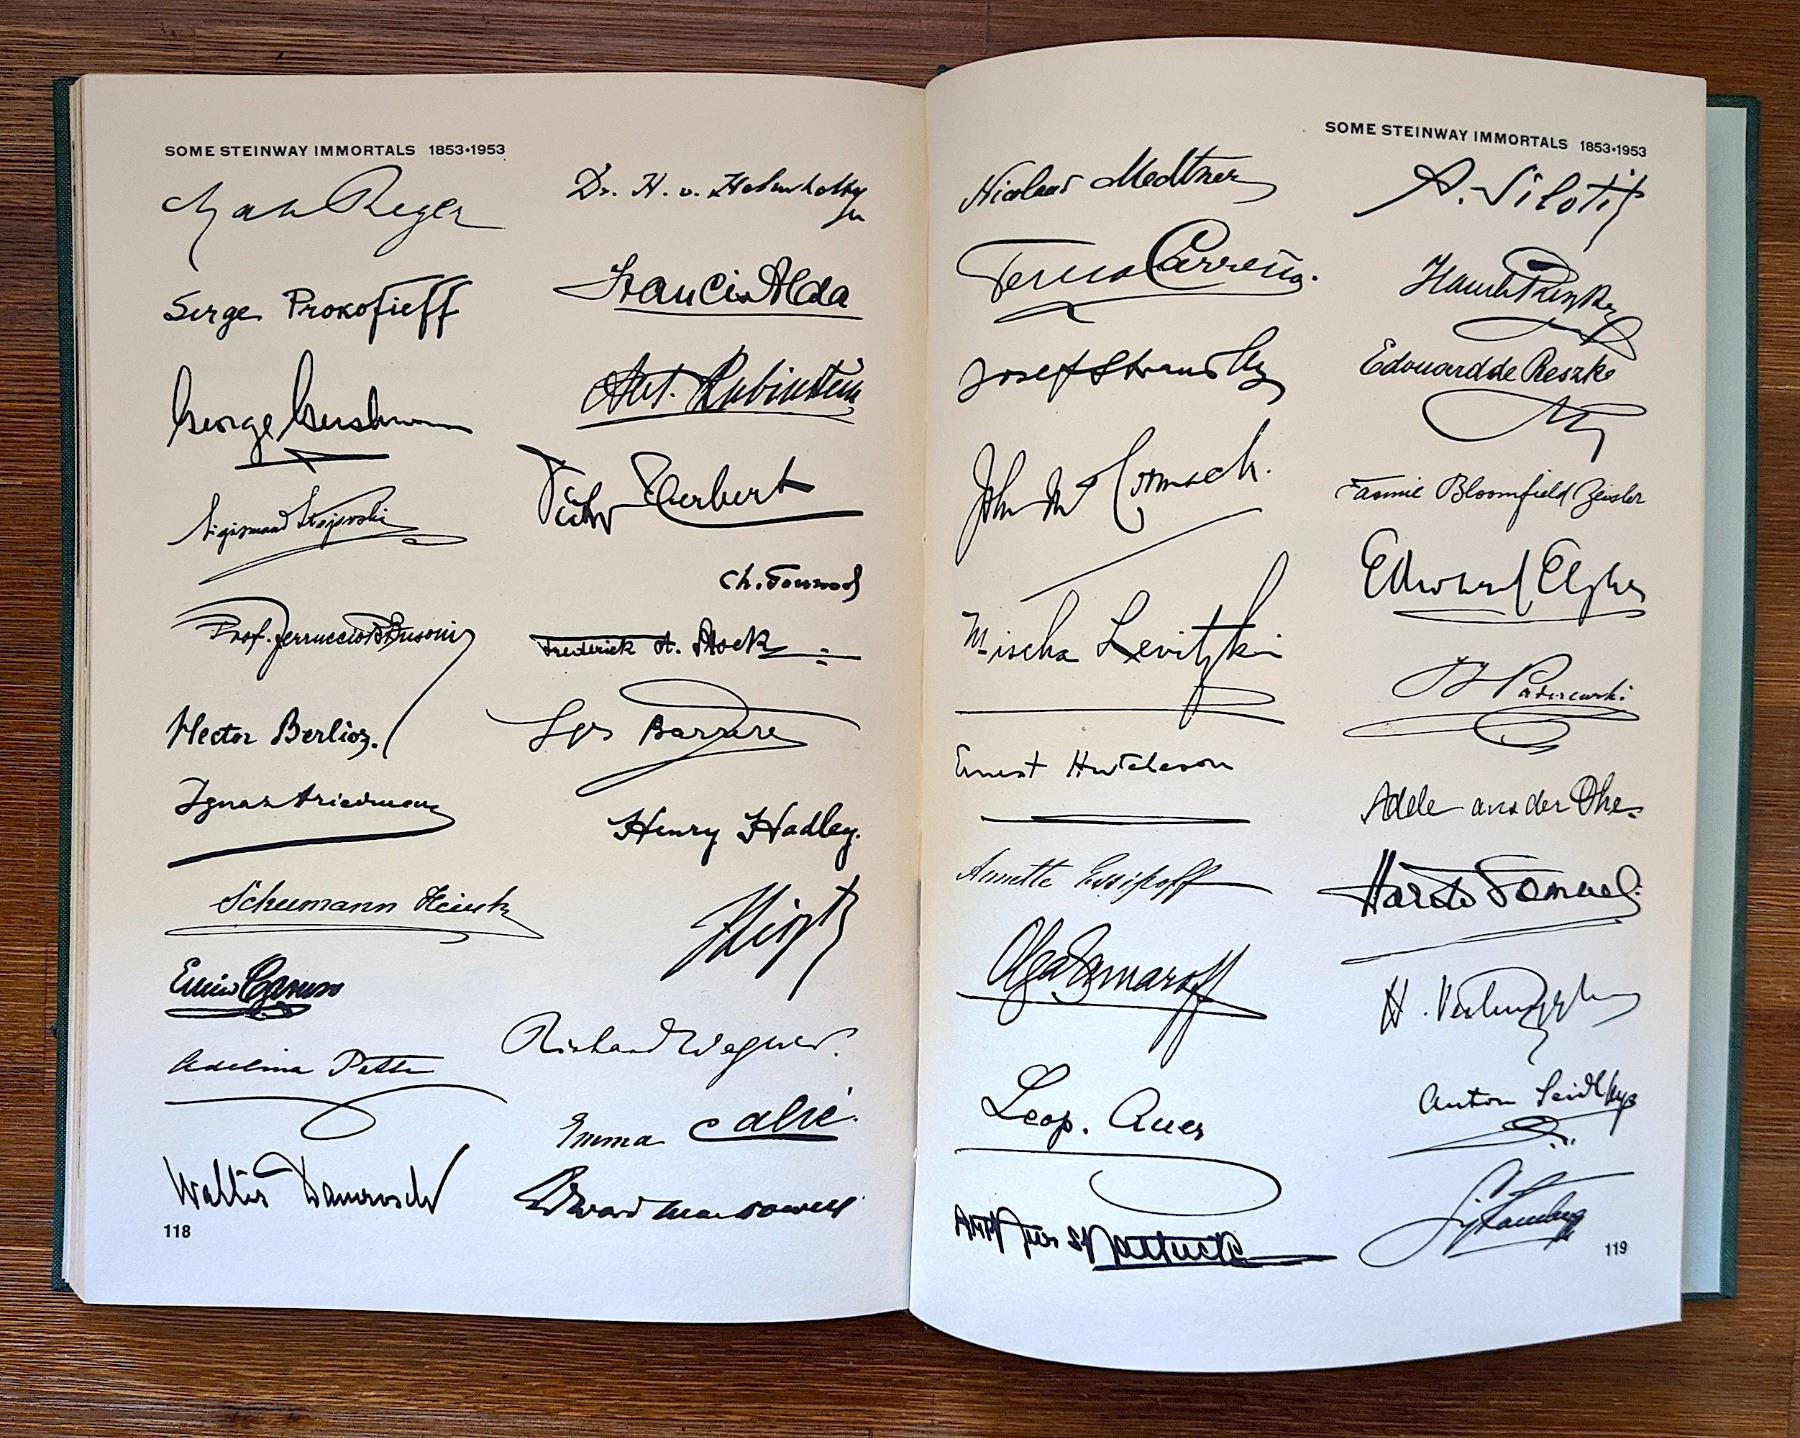 SOME STEINWAY IMMORTALS 1853•1953
Max Reger
Serge Prokofieff
George Gershwin
Sigismond Stojowski
Prof. Ferruccio B. Busoni
Hector Berlioz.
Ignaz Friedman
Schumann Heink
Enrico Caruso
Adelina Patti
Walter Damrosch
118
Dr. H. v. Helmholtz
Frances Alda
Ant. Rubinstein
Victor Herbert
Ch. Gounod
Frederick A. Stock
Barrère
Henry Hadley.
F Liszt
Richard Wagner.
Emma Calvé.
Edward MacDowell
SOME STEINWAY IMMORTALS 1853•1953
Nicolas Medtner
Teresa Carreño.
Josef Stransky
John McCormack.
Mischa Levitzki
Ernest Hutcheson
Annette Essipoff
Olga Samaroff
Leop. Auer
Arthur Shattuck
A. Siloti
Edouard de Reszke
Fannie Bloomfield Zeisler
Edward Elgar
I J Paderewski
Adele aus der Ohe.
Harold Samuel.
Anton Seidl
119